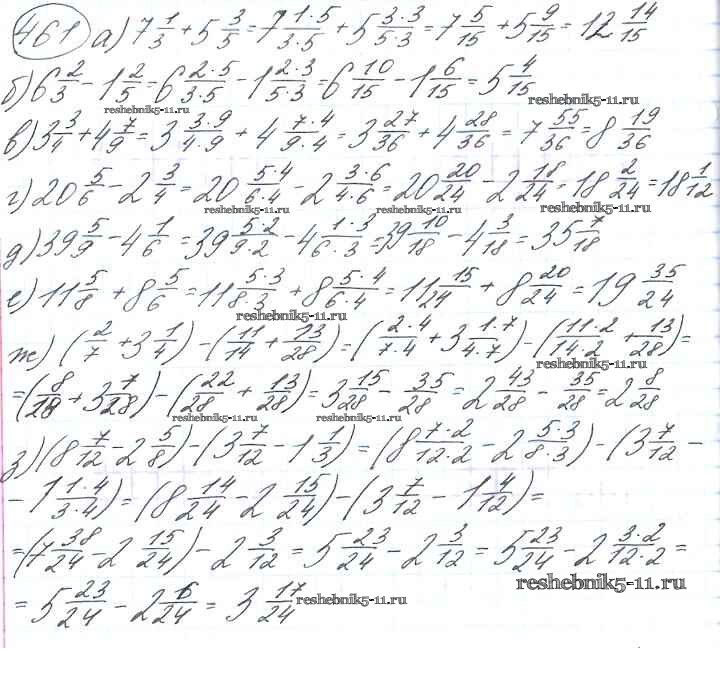 461 а) 7 1/3 + 5 3/5 = 7 1·5/3·5 + 5 3·3/5·3 = 7 5/15 + 5 9/15 = 12 14/15
б) 6 2/3 - 1 2/5 = 6 2·5/3·5 - 1 2·3/5·3 = 6 10/15 - 1 6/15 = 5 4/15
reshebnik5-11.ru reshebnik5-11.ru
в) 3 3/4 + 4 7/9 = 3 3·9/4·9 + 4 7·4/9·4 = 3 27/36 + 4 28/36 = 7 55/36 = 8 19/36
г) 20 5/6 - 2 3/4 = 20 5·4/6·4 - 2 3·6/4·6 = 20 20/24 - 2 18/24 = 18 2/24 = 18 1/12
reshebnik5-11.ru reshebnik5-11.ru
д) 39 5/9 - 4 1/6 = 39 5·2/9·2 - 4 1·3/6·3 = 39 10/18 - 4 3/18 = 35 7/18
е) 11 5/8 + 8 5/6 = 11 5·3/8·3 + 8 5·4/6·4 = 11 15/24 + 8 20/24 = 19 35/24
reshebnik5-11.ru
ж) (2/7 + 3 1/4) - (11/14 + 13/28) = (2·4/7·4 + 3 1·7/4·7) - (11·2/14·2 + 13/28) =
reshebnik5-11.ru
= (8/28 + 3 7/28) - (22/28 + 13/28) = 3 15/28 - 35/28 = 2 43/28 - 35/28 = 2 8/28
reshebnik5-11.ru reshebnik5-11.ru
з) (8 7/12 - 2 5/8) - (3 7/12 - 1 1/3) = (8 7·2/12·2 - 2 5·3/8·3) - (3 7/12 -
- 1 1·4/3·4) = (8 14/24 - 2 15/24) - (3 7/12 - 1 4/12) =
= (7 38/24 - 2 15/24) - 2 3/12 = 5 23/24 - 2 3/12 = 5 23/24 - 2 3·2/12·2 =
reshebnik5-11.ru
= 5 23/24 - 2 6/24 = 3 17/24
reshebnik5-11.ru